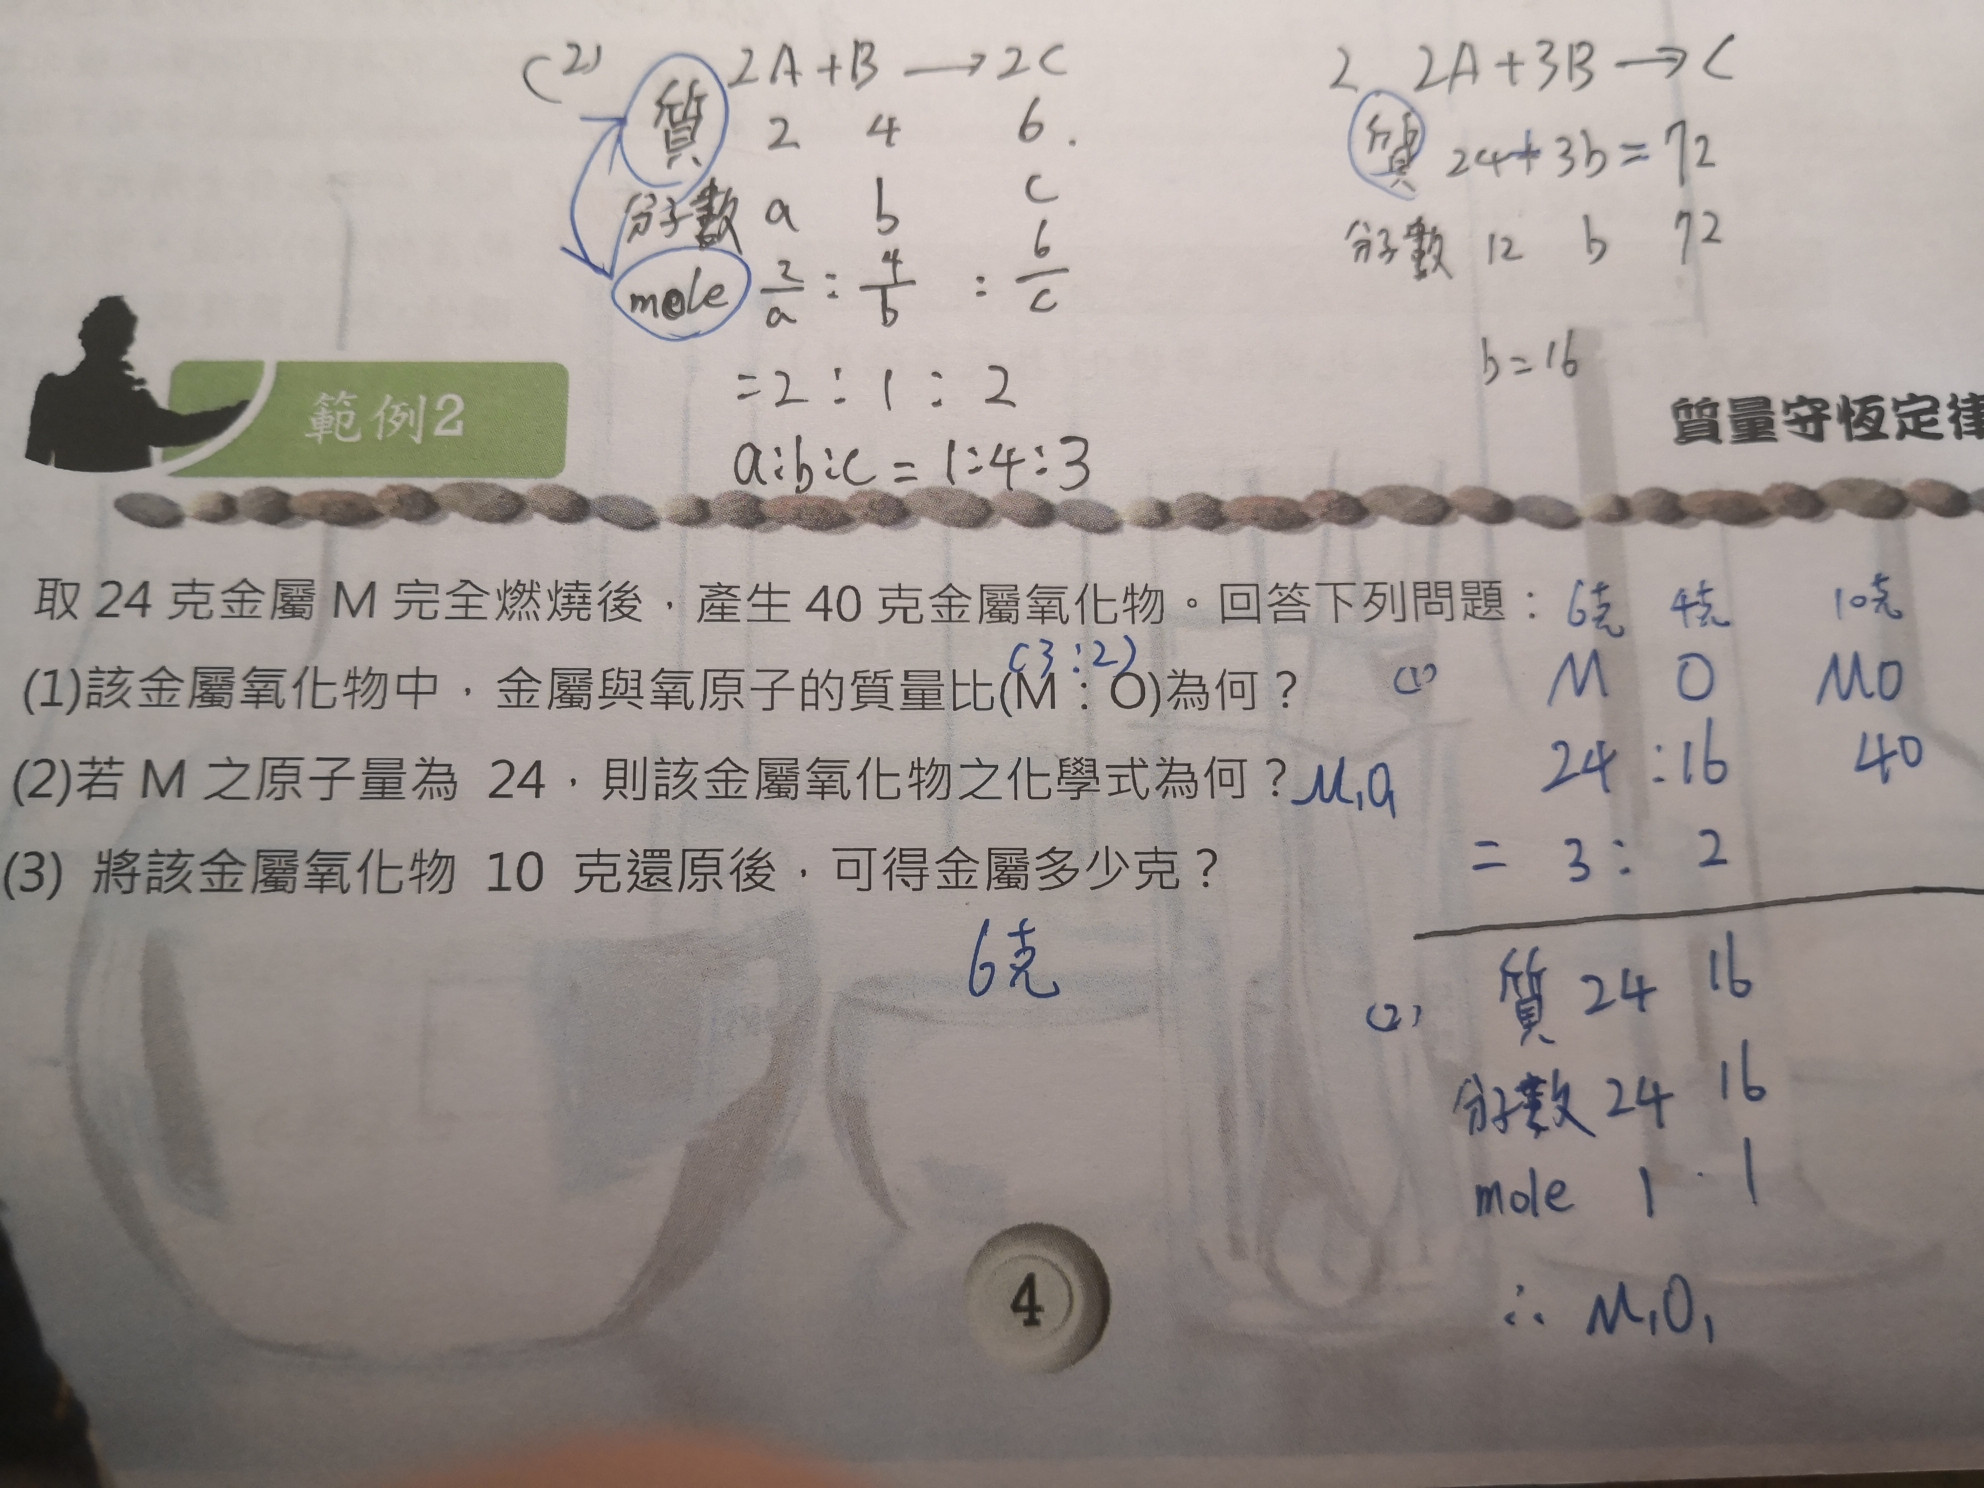 (2) 2A+B → 2C
質 2 4 6.
分子數 a b c
mole 2/a : 4/b : 6/c
=2:1:2
a:b:c = 1:4:3
2 2A+3B → C
質 24+3b=72
分子數 12 b 72
b=16
範例2
質量守恆定律
取 24 克金屬 M 完全燃燒後，產生 40 克金屬氧化物。回答下列問題：
(3:2)
(1)該金屬氧化物中，金屬與氧原子的質量比(M：O)為何？
(2)若 M 之原子量為 24，則該金屬氧化物之化學式為何？M₁O₁
(3) 將該金屬氧化物 10 克還原後，可得金屬多少克？
6克
6克 4克 10克
(1) M O MO
24 :16 40
= 3: 2
(2) 質 24 16
分子數 24 16
mole 1 . 1
∴ M₁O₁
4